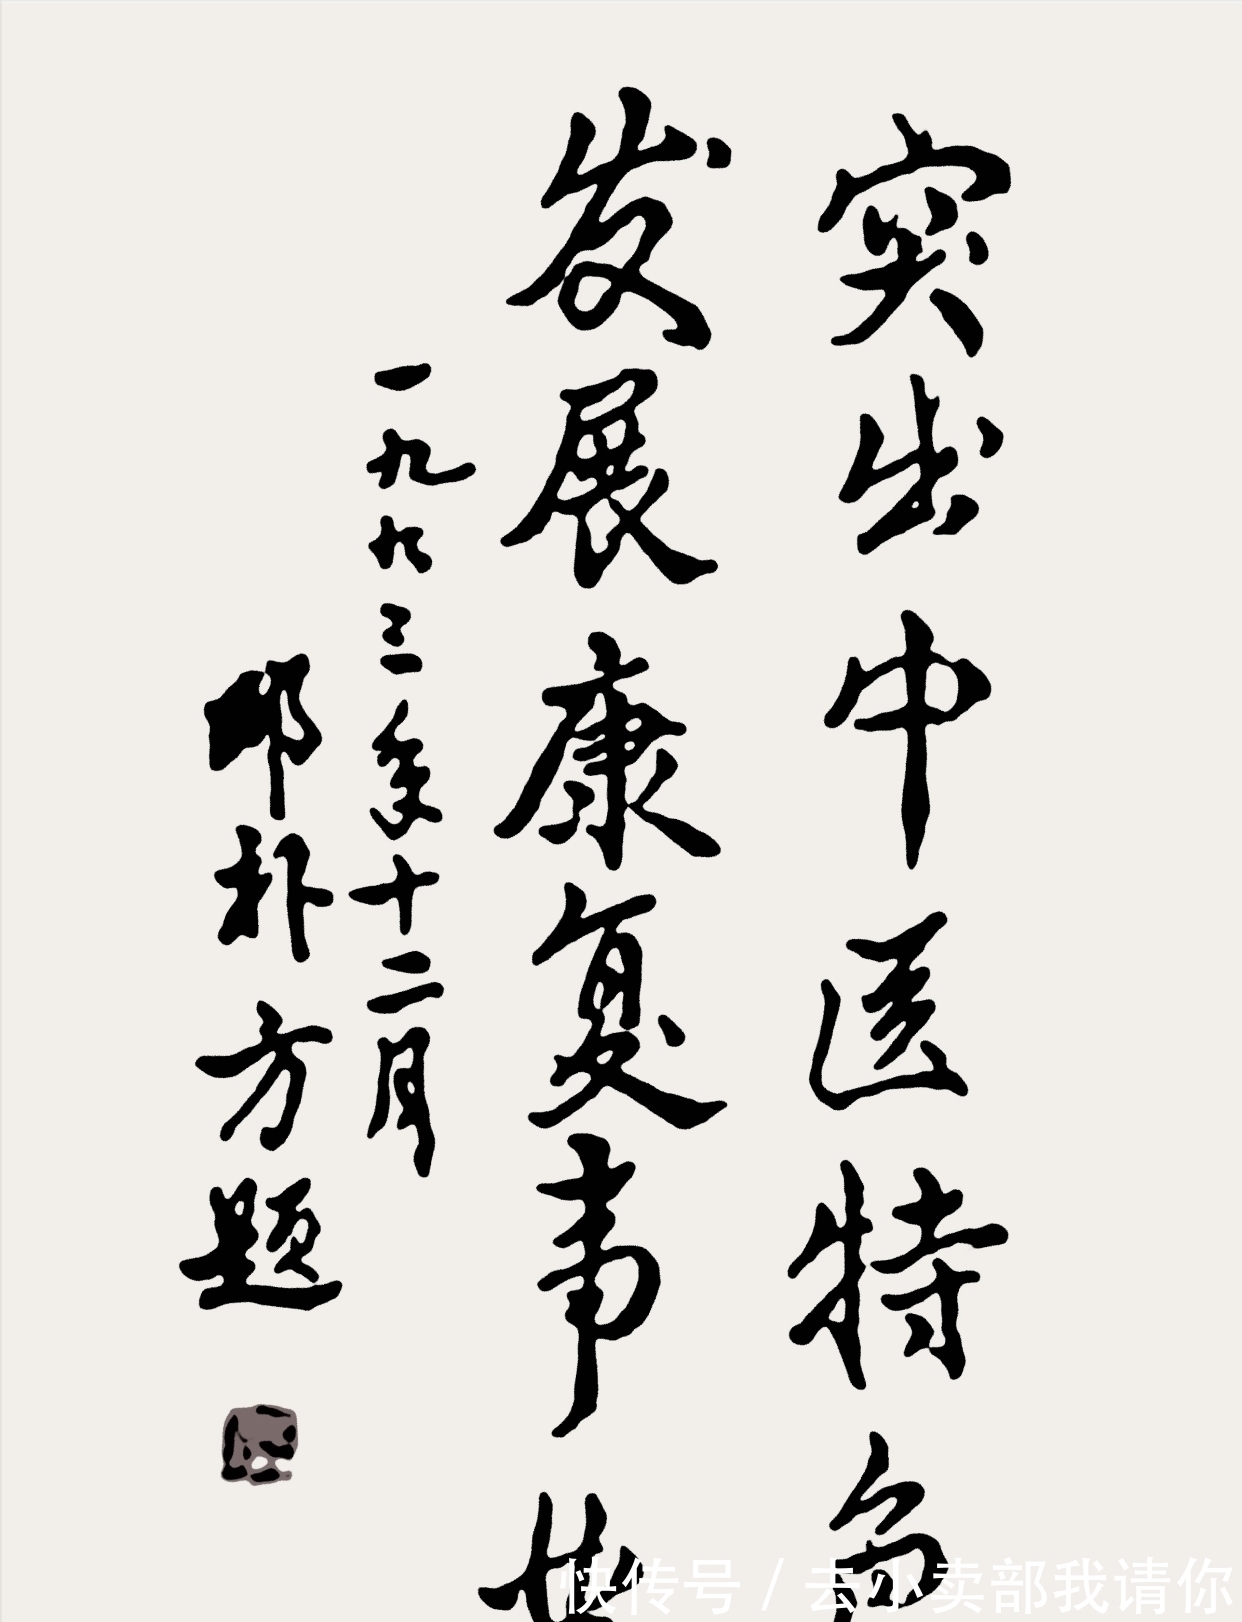 突出中医特色
发展康复事业
一九九三年十二月
邓朴方题
快传号 / 去小卖部我请你